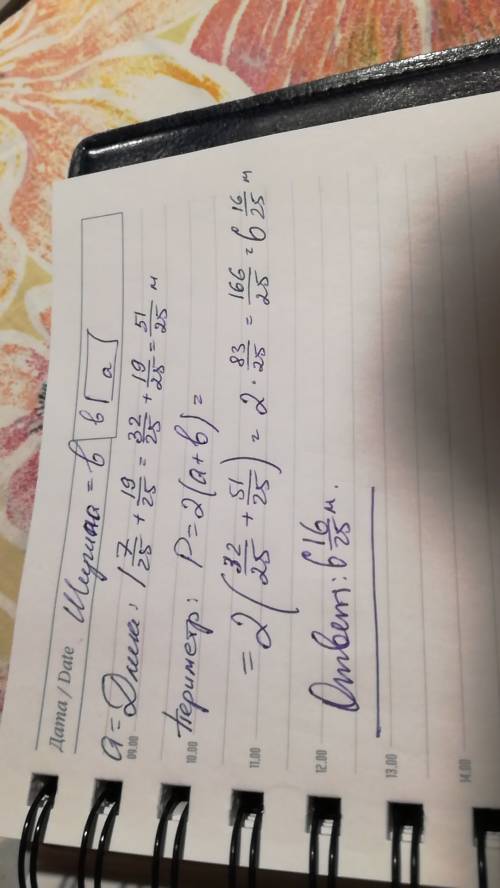 Дата / Date Ширина = в в а
a = Длина: 1 7/25 + 19/25 = 32/25 + 19/25 = 51/25 м
09.00
Периметр: P = 2(a+в) =
10.00
= 2(32/25 + 51/25) = 2 · 83/25 = 166/25 = 6 16/25 м
11.00
Ответ: 6 16/25 м.
12.00
13.00
14.00